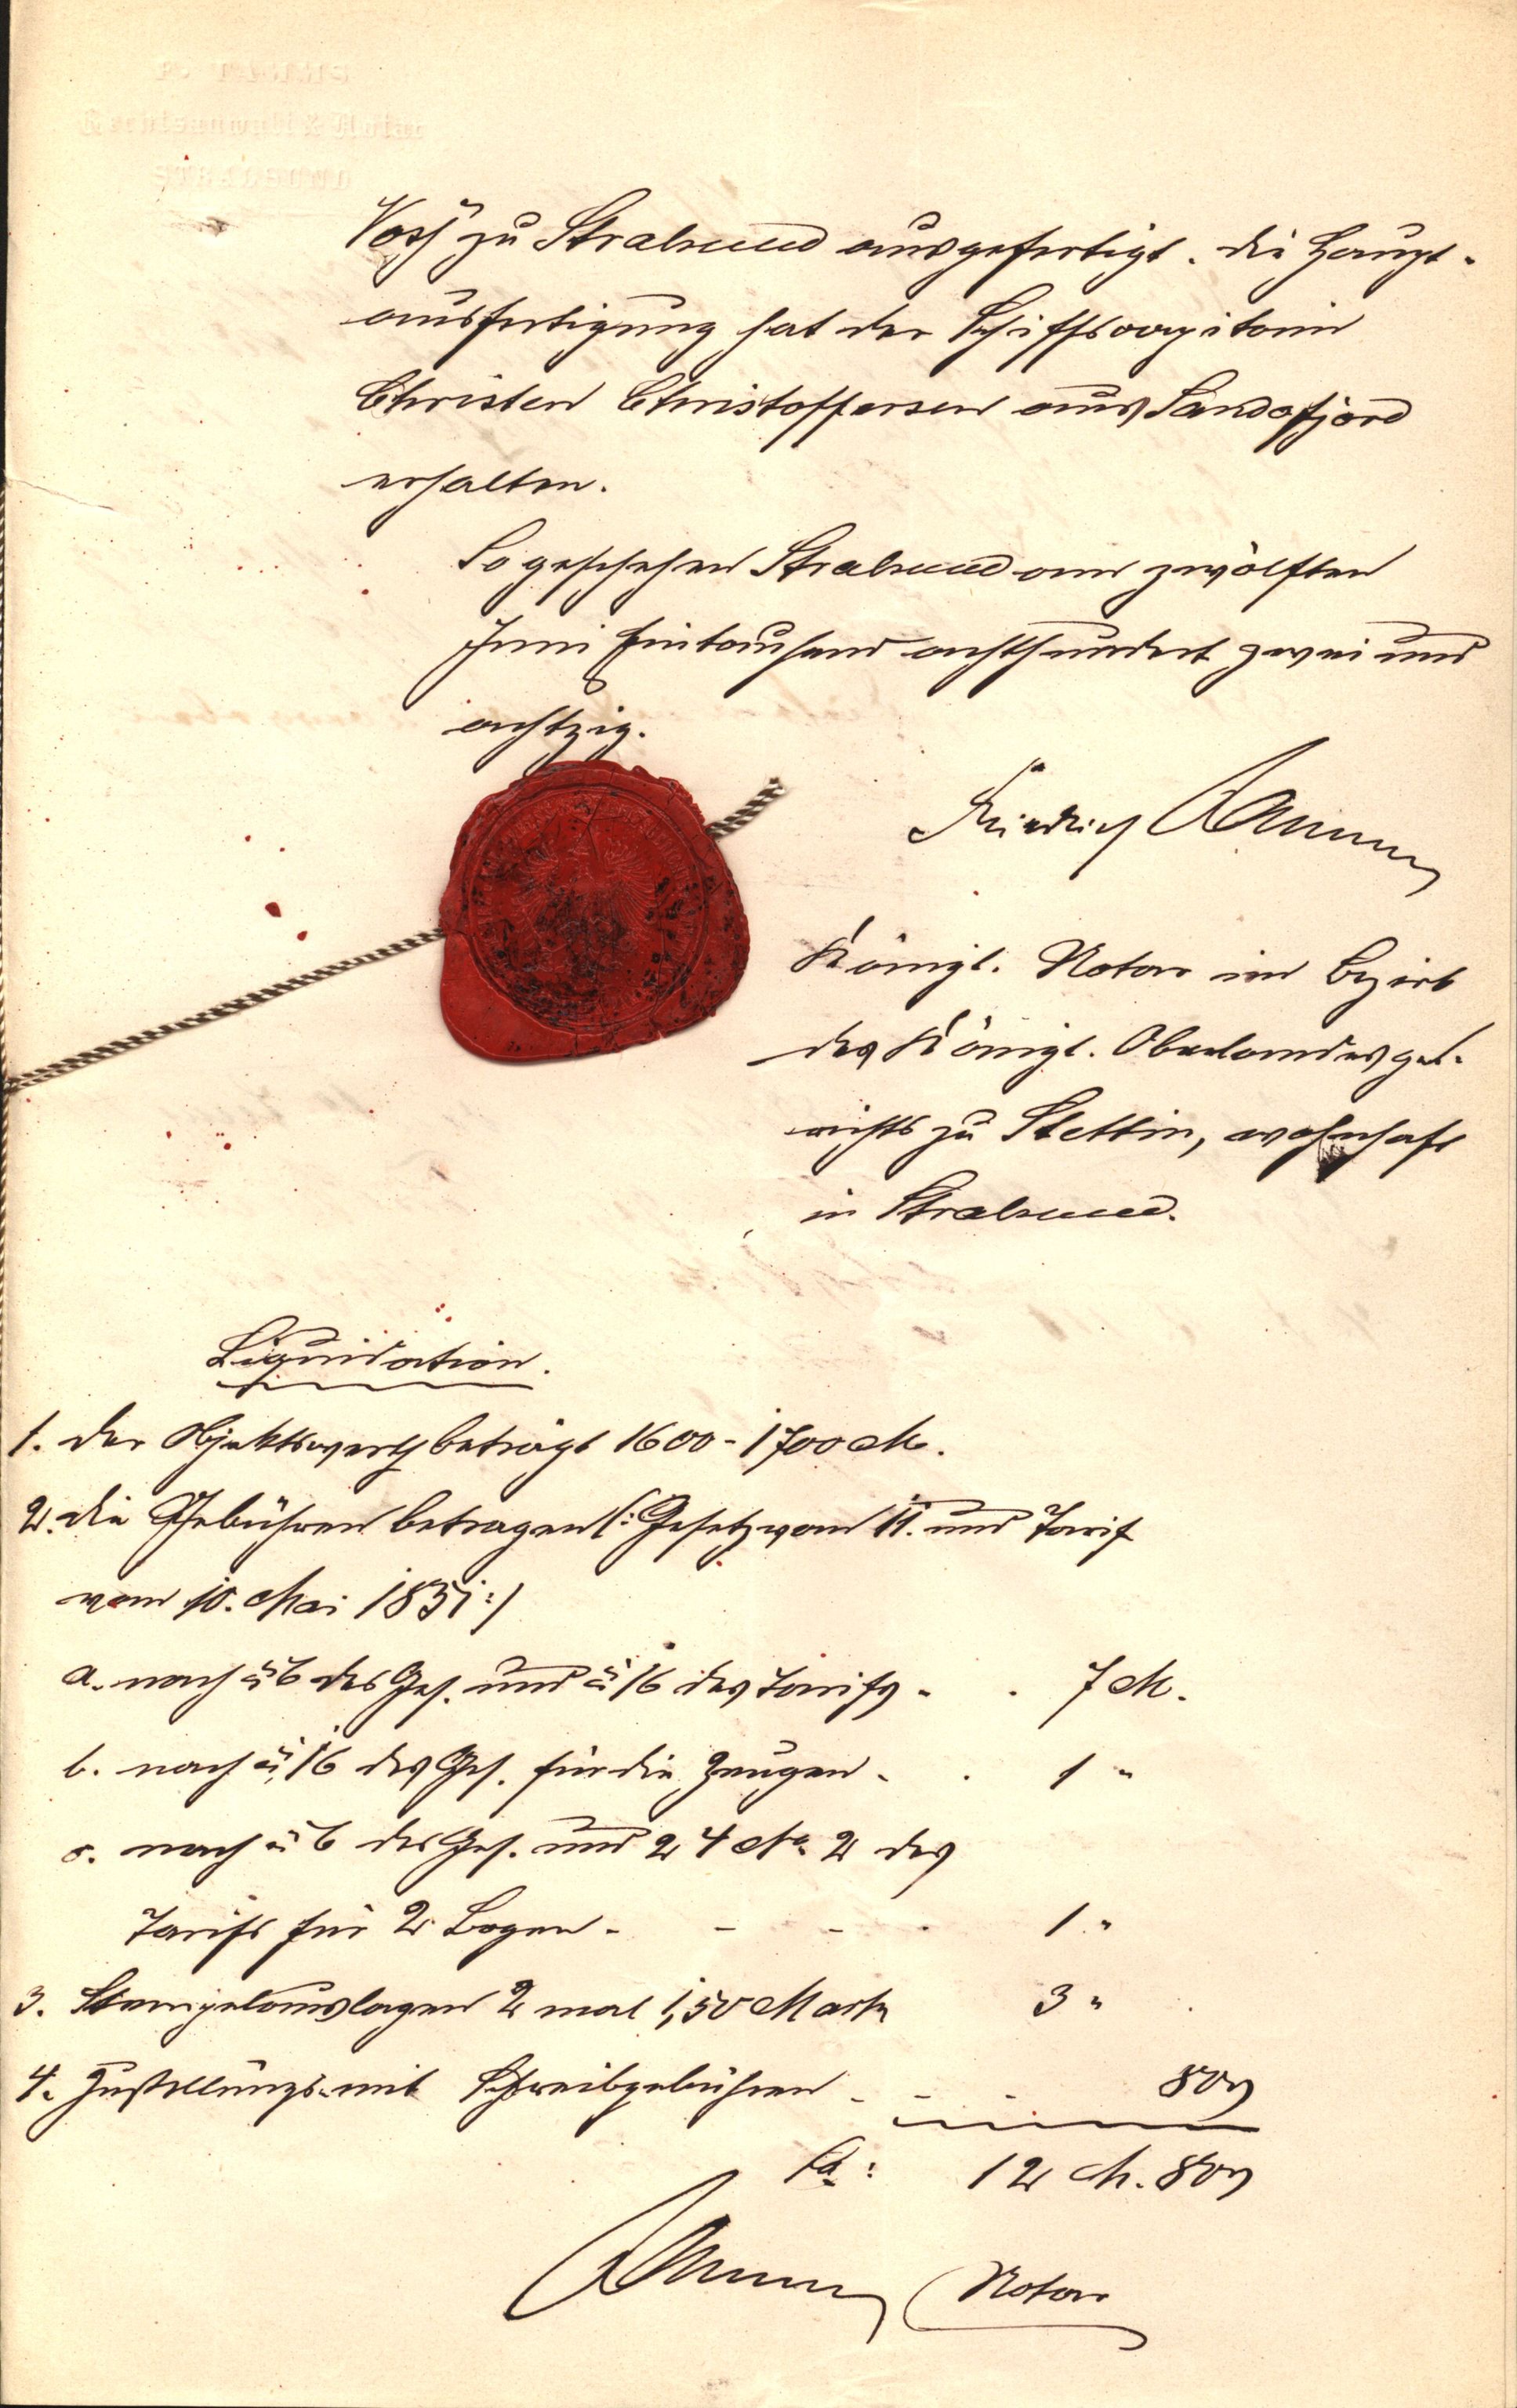 F. TAMMS
Rechtsanwalt & Notar
STRALSUND
Voß zu Stralsund ausgefertigt. Die Haupt-
ausfertigung hat der Schiffscapitain
Christen Christoffersen aus Sandefjord
erhalten.
So geschehen Stralsund am zwölften
Juni Eintausend achthundert zwei und
achtzig.
Friedrich Tamms
Königl. Notar im Bezirk
des Königl. Oberlandesge-
richts zu Stettin, wohnhaft
in Stralsund.
Liquidation.
1. Der Objektswerth beträgt 1600-1700 M.
2. die Gebühren betragen (: Gesetz vom 11. und Tarif
vom 10. Mai 1851 :)
a. nach § 6 des Ges. und § 16 des Tarifs - . 7 M.
b. nach § 16 des Ges. für die Zeugen - . 1 "
c. nach § 6 des Ges. und 24 No 2 des
Tarifs für 2 Bogen - - - . 1 "
3. Stempelauslagen 2 mal 1,50 Mark 3 "
4. Zustellungs- mit Schreibgebühren - - - 80 ₰
Sa: 12 M. 80 ₰
Tamms Notar